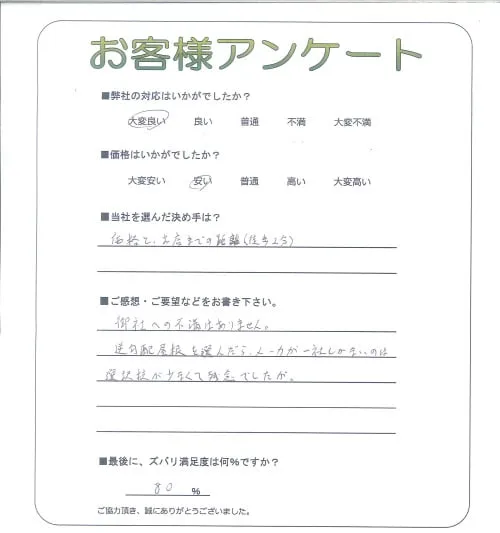 お客様アンケート
■弊社の対応はいかがでしたか？
大変良い 良い 普通 不満 大変不満
■価格はいかがでしたか？
大変安い 安い 普通 高い 大変高い
■当社を選んだ決め手は？
価格と、お店までの距離(徒歩2分)
■ご感想・ご要望などをお書き下さい。
御社への不満はありません。
逆勾配屋根を選んだら、メーカーが一社しかないのは
選択枝が少なくて残念でしたが。
■最後に、ズバリ満足度は何％ですか？
80 %
ご協力頂き、誠にありがとうございました。